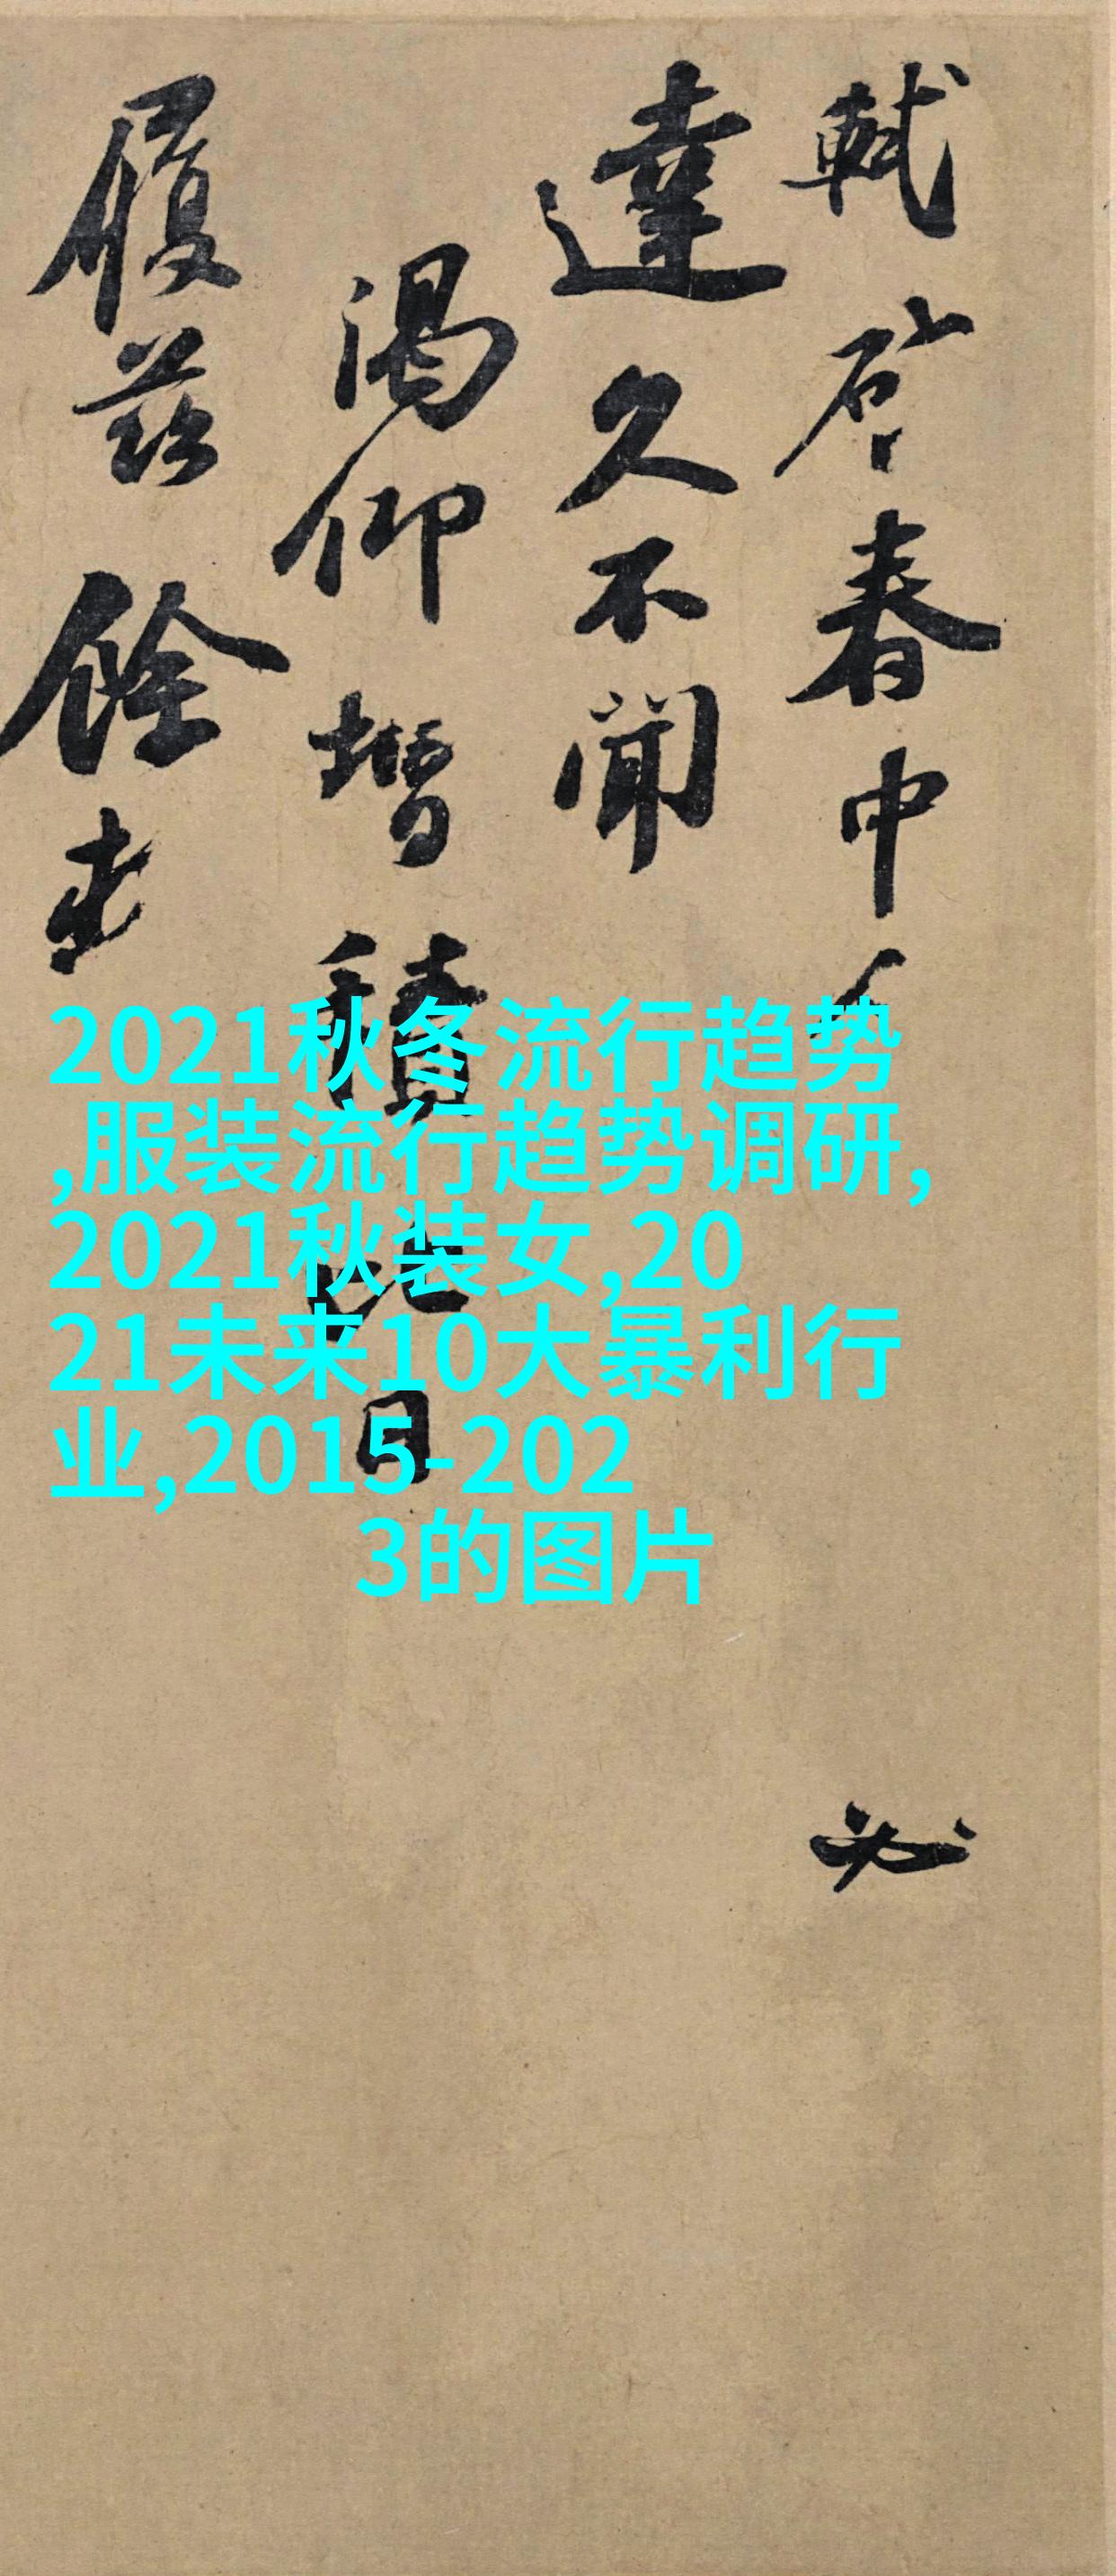 軾啓春中 必
達久不聞
渴仰增積比日
履茲餘
2021秋冬流行趋势
,服装流行趋势调研,
2021秋装女,20
21未来10大暴利行
业,2015-202
3的图片